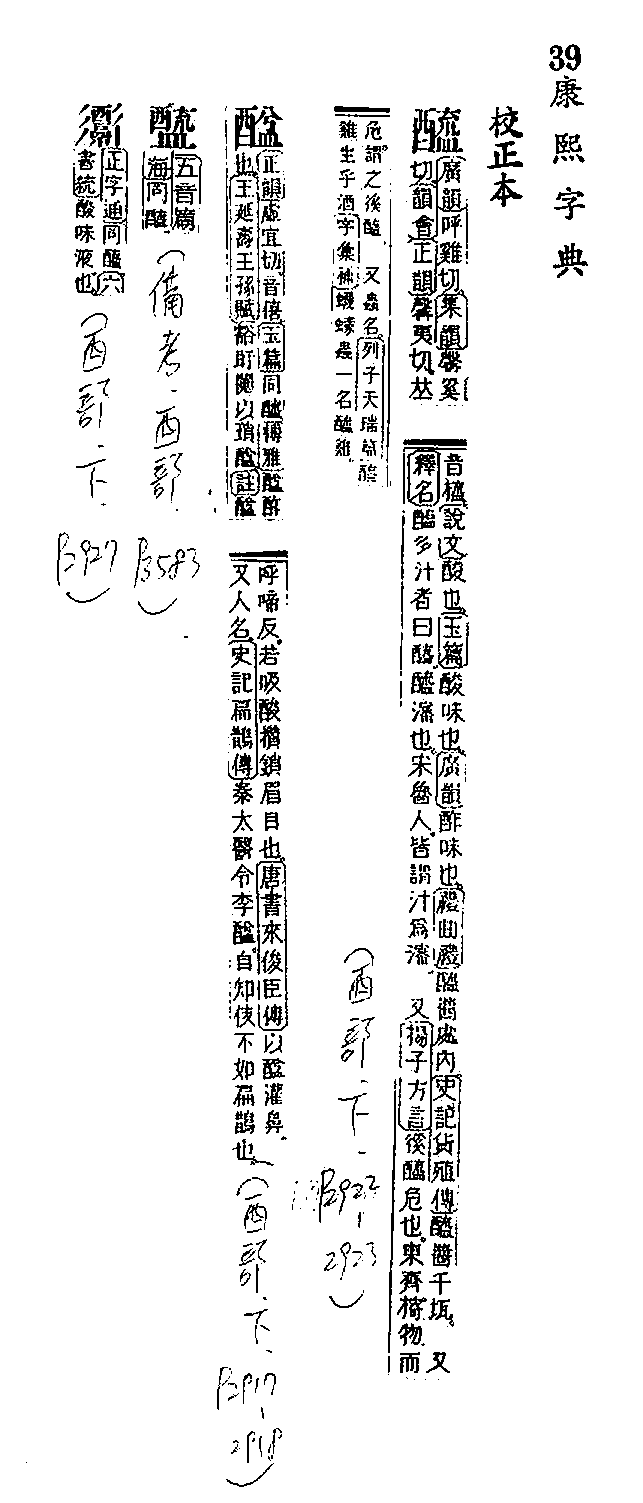 39
康熙字典
校正本
醯
廣韻呼雞切集韻馨奚
切韻會正韻馨夷切𠀤
音橀說文酸也玉篇酸味也廣韻酢味也禮曲禮醯醬處內史記貨殖傳醯醬千瓨又
釋名醢多汁者曰醯醯瀋也宋魯人皆謂汁為瀋 又揚子方言後醯危也東齊㨳物而
危謂之後醯 又蟲名列子天瑞篇醯
雞生乎酒字彙補蠛蠓蟲一名醯雞
(酉部、下、P2922-2923)
正韻虛宜切音僖玉篇同醯博雅醯酢
也王延壽王孫賦豁盱䦧以瑣醯註醯
呼啼反若吸酸攢鎖眉目也唐書來俊臣傳以醯灌鼻
又人名史記扁鵲傳秦太醫令李醯自知伎不如扁鵲也
(酉部、下、P2917-2918)
五音篇
海同醯
(備考、酉部、P3583)
正字通同醯六
書統酸味液也
(酉部、下、P2927)